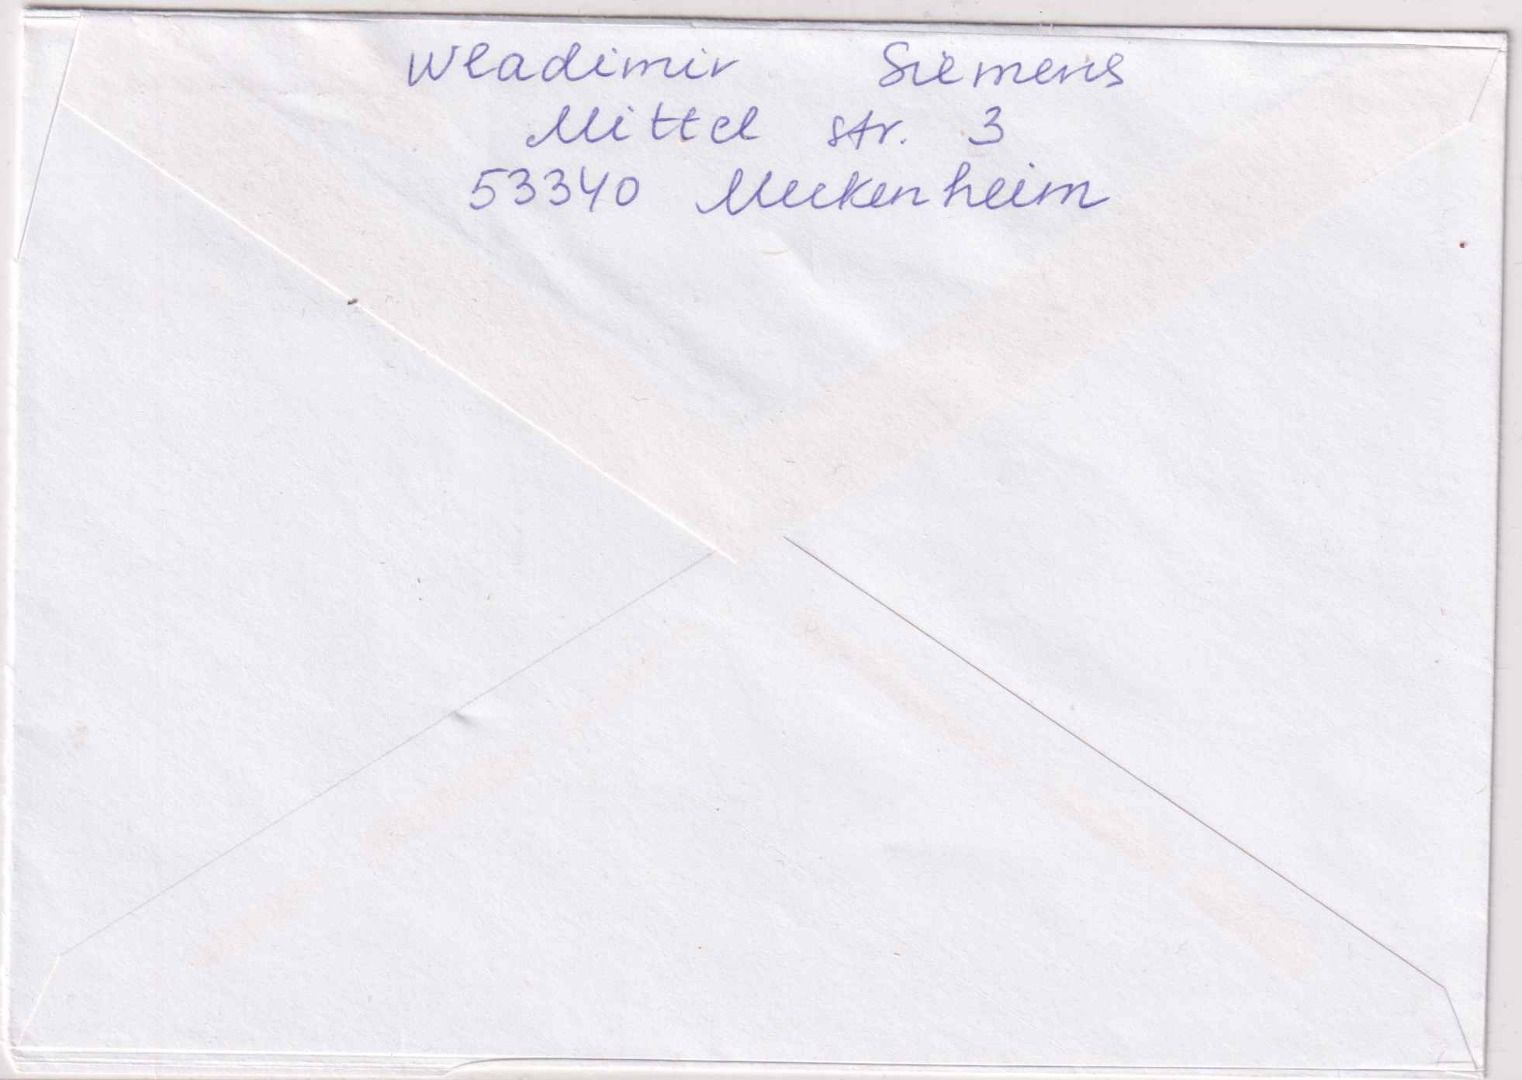 Wladimir Siemens
Mittel str. 3
53340 Meckenheim